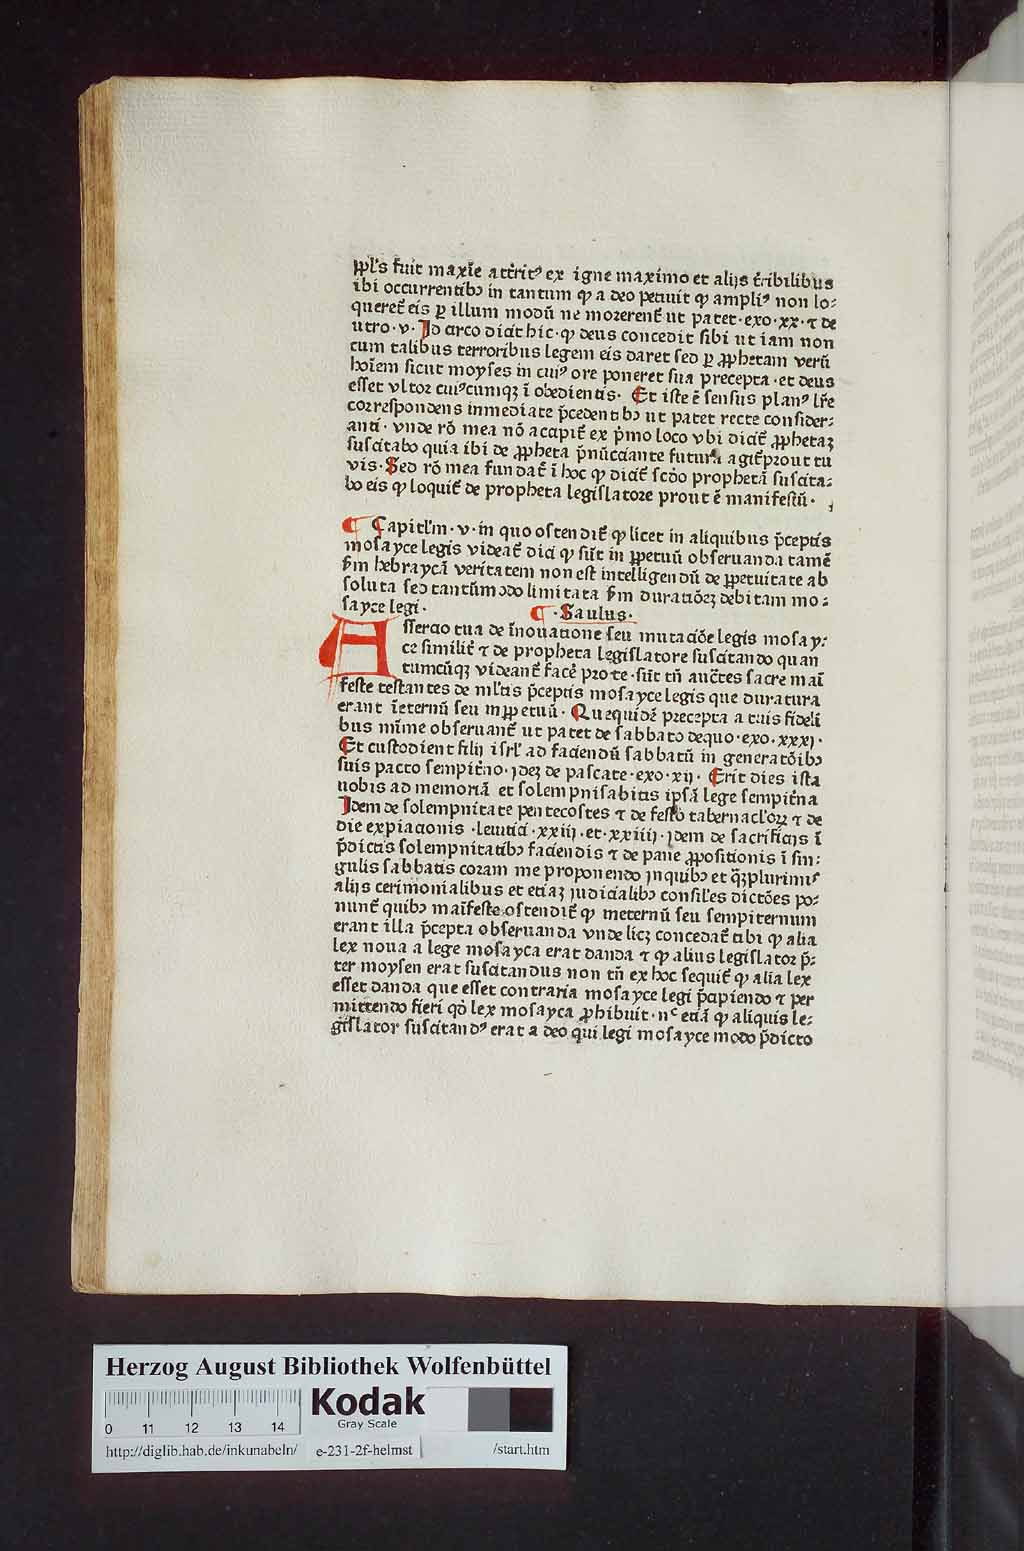 ꝓpl's fuit maxīe att̄rit⁹ ex igne maximo et alijs t̄ribilibus
ibi occurrentibꝫ in tantum ꝙ a deo petiuit ꝙ ampli⁹ non lo⸗
queret̄ eis ꝑ illum modū ne morerent̄ ut patet · exo · xx · ⁊ de
utro · v · Id arco dicit hic · ꝙ deus concedit sibi ut iam non
cum talibus terroribus legem eis daret sed ꝑ ꝓphetam verū
hoīem sicut moyses in cui⁹ ore poneret sua precepta · et deus
esset vltor cui⁹cumqꝫ ī obedientis · Et iste ē sensus plan⁹ lr̄e
correspondens inmediate p̄cedentibꝫ ut patet recte consider⸗
anti · vnde rō mea nō accipit̄ ex p̄mo loco vbi dicit̄ ꝓphetaꝫ
suscitabo quia ibi de ꝓpheta p̄nūciante futura agit̄ prout tu
vis · Sed rō mea fundat̄ ī hoc ꝙ dicit̄ scd̄o prophetā suscita⸗
bo eis ꝙ loquit̄ de propheta legislatore prout ē manifestū ·
¶ Capitl'm · v · in quo ostendit̄ ꝙ licet in aliquibus p̄ceptis
mosayce legis videat̄ dici ꝙ sūt in ꝑpetuū obseruanda tamē
sm̄ hebraycā veritatem non est intelligendū de ꝑpetuitate ab
soluta sed tantūmodo limitata sm̄ duratiōeꝫ debitam mo⸗
sayce legi · ¶ · Saulus ·
Assercio tua de īnouatione seu mutaciōe legis mosay⸗
ce similit̄ ⁊ de propheta legislatore suscitando quan
tumcūqꝫ videant̄ facer̄ pro te · sūt tn̄ auct̄es sacre mai
feste testantes de ml'tis p̄ceptis mosayce legis que duratura
erant īeternū seu inꝑpetuū · Quequidē precepta a tuis fideli
bus mīme obseruant̄ ut patet de sabbato dequo · exo · xxxj ·
Et custodient filij isrl' ad faciendū sabbatū in generatōibꝫ
suis pacto sempit̄no · jdeꝫ de pascate · exo · xij · Erit dies ista
uobis ad memoriā et solempnisabitis ipsā lege sempit̄na
Idem de solempnitate pentecostes ⁊ de festo tabernacl'oꝝ ⁊ de
die expiacionis · leuitici · xxiij · et · xxiiij · jdem de sacrificijs ī
p̄dictis solempnitatibꝫ faciendis ⁊ de pane ꝓpositionis ī sin⸗
gulis sabbatis coram me proponendo jnquibꝫ et q̄ꝫplurimis
alijs cerimonialibus et etiaꝫ judicialibꝫ consil'es dictōes po⸗
nunt̄ quibꝫ maīfeste ostendit̄ ꝙ ineternū seu sempiternum
erant illa p̄cepta obseruanda vnde licꝫ concedat̄ tibi ꝙ alia
lex noua a lege mosayca erat danda ⁊ ꝙ alius legislator p̄⸗
ter moysen erat suscitandus non tn̄ ex hoc sequit̄ ꝙ alia lex
esset danda que esset contraria mosayce legi p̄cipiendo ⁊ per
mittendo fieri qd̄ lex mosayca ꝓhibuit · nᶜ etiā ꝙ aliquis le⸗
gislator suscitand⁹ erat a deo qui legi mosayce modo p̄dicto
Herzog August Bibliothek Wolfenbüttel
0 11 12 13 14
Kodak
Gray Scale
http://diglib.hab.de/inkunabeln/ e-231-2f-helmst /start.htm